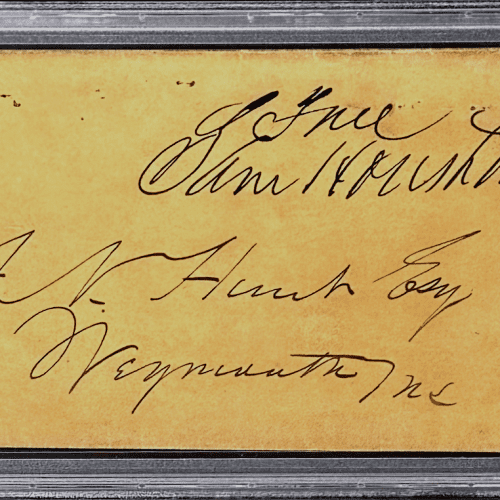 Free
Sam Houston
N. Hunt Esq
Weymouth Ms